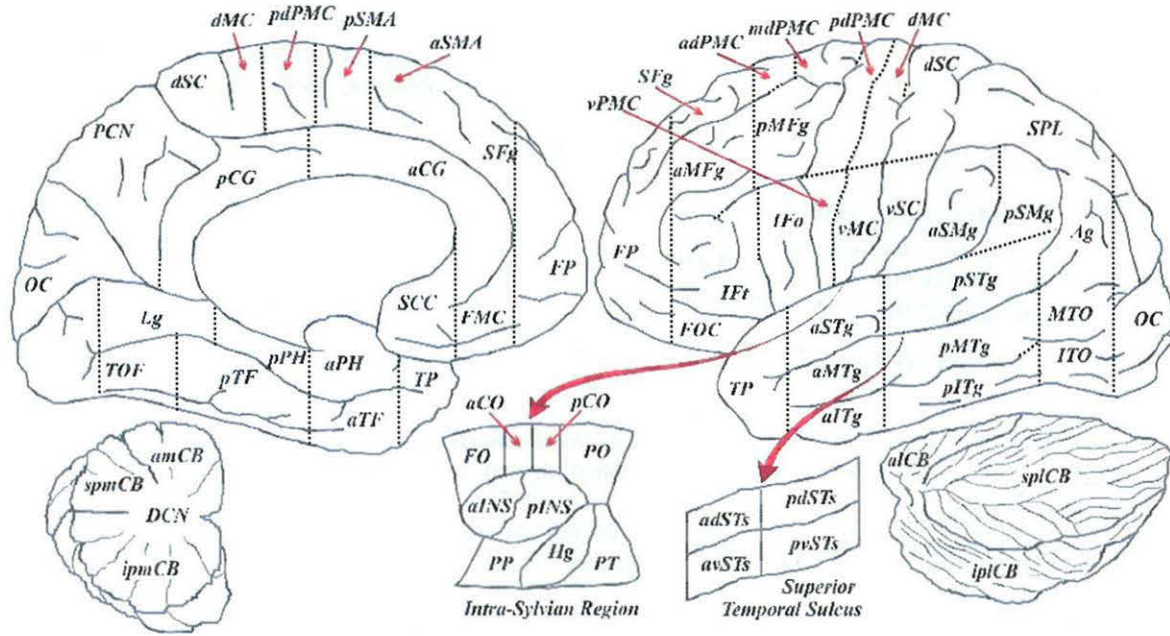 dMC
pdPMC
pSMA
aSMA
dSC
PCN
pCG
aCG
SFg
OC
SCC
FMC
FP
Lg
TOF
pTF
pPH
aPH
TP
aTF
SFg
vPMC
adPMC
mdPMC
pdPMC
dMC
dSC
SPL
pMFg
aMFg
IFo
vMC
vSC
aSMg
pSMg
Ag
FP
IFt
FOC
pSTg
aSTg
MTO
OC
TP
aMTg
pMTg
ITO
aITg
pITg
amCB
spmCB
DCN
ipmCB
aCO
pCO
FO
PO
aINS
pINS
PP
Hg
PT
Intra-Sylvian Region
adSTs
pdSTs
avSTs
pvSTs
Superior
Temporal Sulcus
alCB
splCB
iplCB